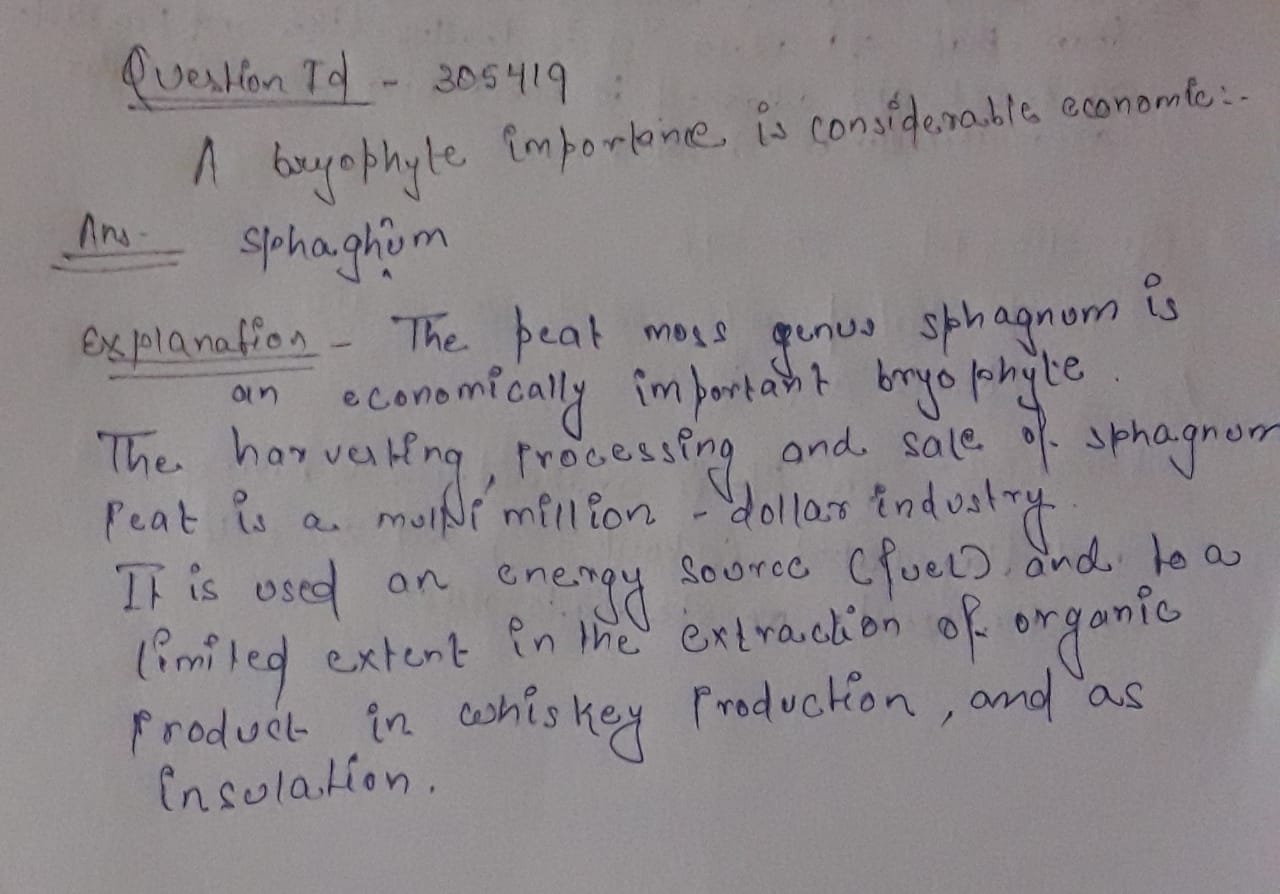 Question Id - 305419 :
A bryophyte importance is considerable economic :-
Ans - Sphaghum
Explanation - The peat moss genus sphagnum is
an economically important bryophyte.
The harvesting, processing and sale of sphagnum
Peat is a multi million - dollar industry.
It is used an energy source (fuel) and to a
limited extent in the extraction of organic
product in whiskey production, and as
insulation.